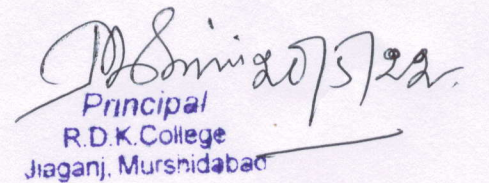 20/5/22.
Principal
R.D.K.College
Jiaganj, Murshidabad